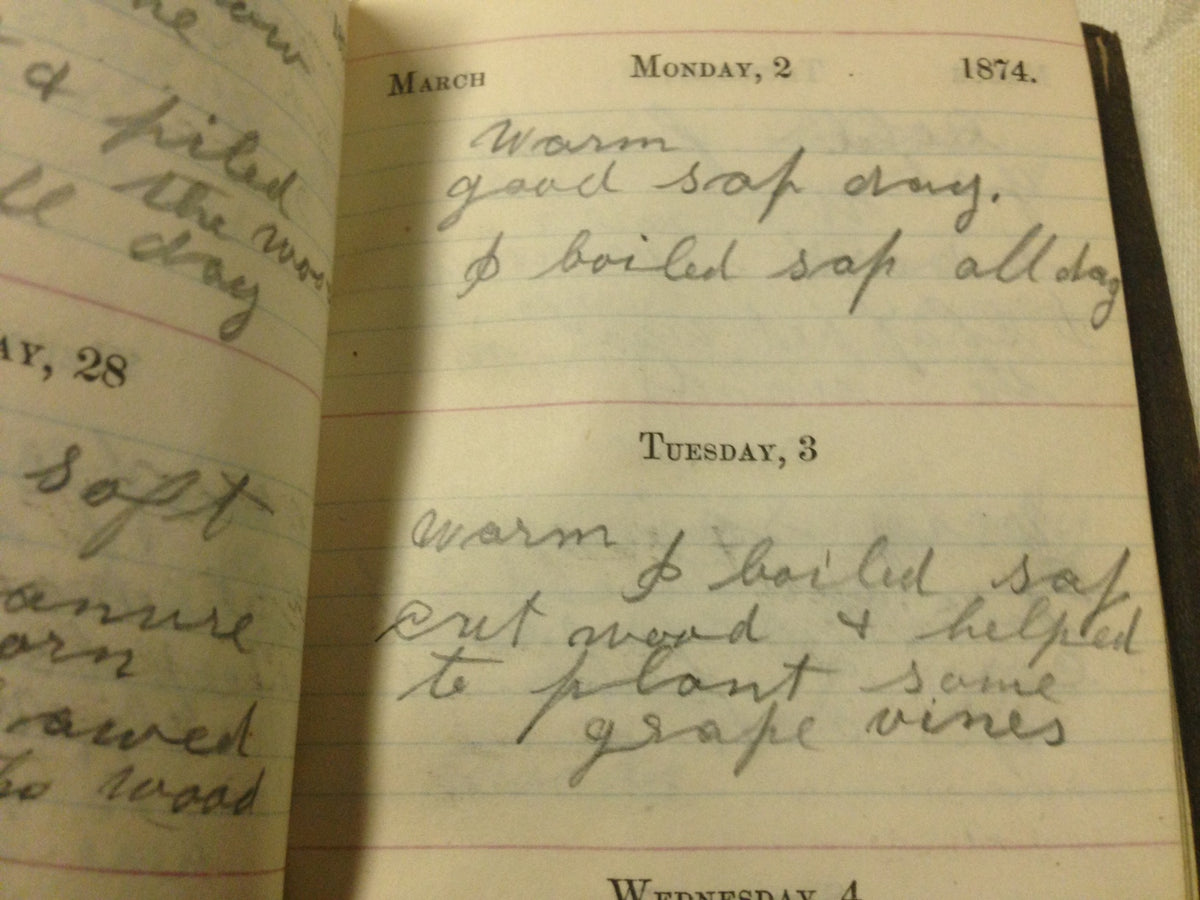 & piled
the
ll day
AY, 28
soft
anure
orn
awed
wood
MARCH MONDAY, 2 1874.
Warm
good sap day.
I boiled sap all day
TUESDAY, 3
Warm I boiled sap
cut wood & helped
to plant some
grape vines
WEDNESDAY, 4